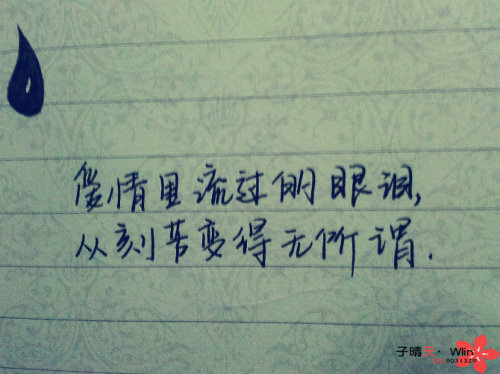 爱情里流过的眼泪,
从刻苦变得无所谓.
子晴天· Win